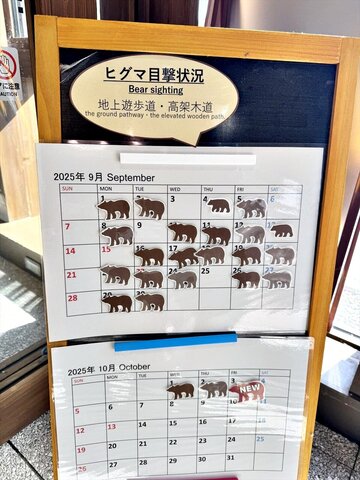 ヒグマ目撃状況
Bear sighting
地上遊歩道・高架木道
the ground pathway・the elevated wooden path
に注意
CAUTION
2025年 9月 September
SUN MON TUE WED THU FRI SAT
1 2 3 4 5 6
7 8 9 10 11 12 13
14 15 16 17 18 19 20
21 22 23 24 25 26 27
28 29 30
2025年 10月 October
SUN MON TUE WED THU FRI SAT
1 2 3
NEW
5 6 7 8 9 10 11
12 13 14 15 16 17 18
19 20 21 22 23 24 25
26 27 28 29 30 31